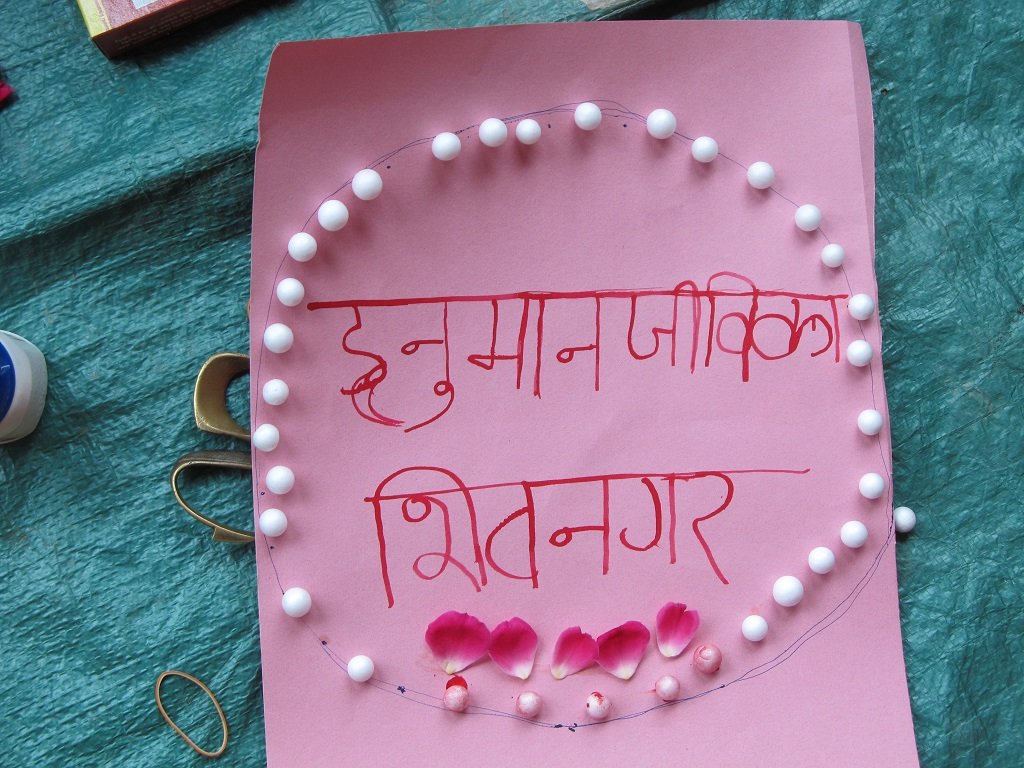 हनुमान जीविका
शिवनगर